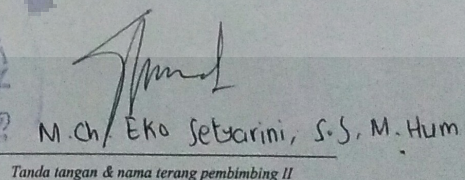 M. Ch. Eko Setyarini, S.S, M. Hum
Tanda tangan & nama terang pembimbing II